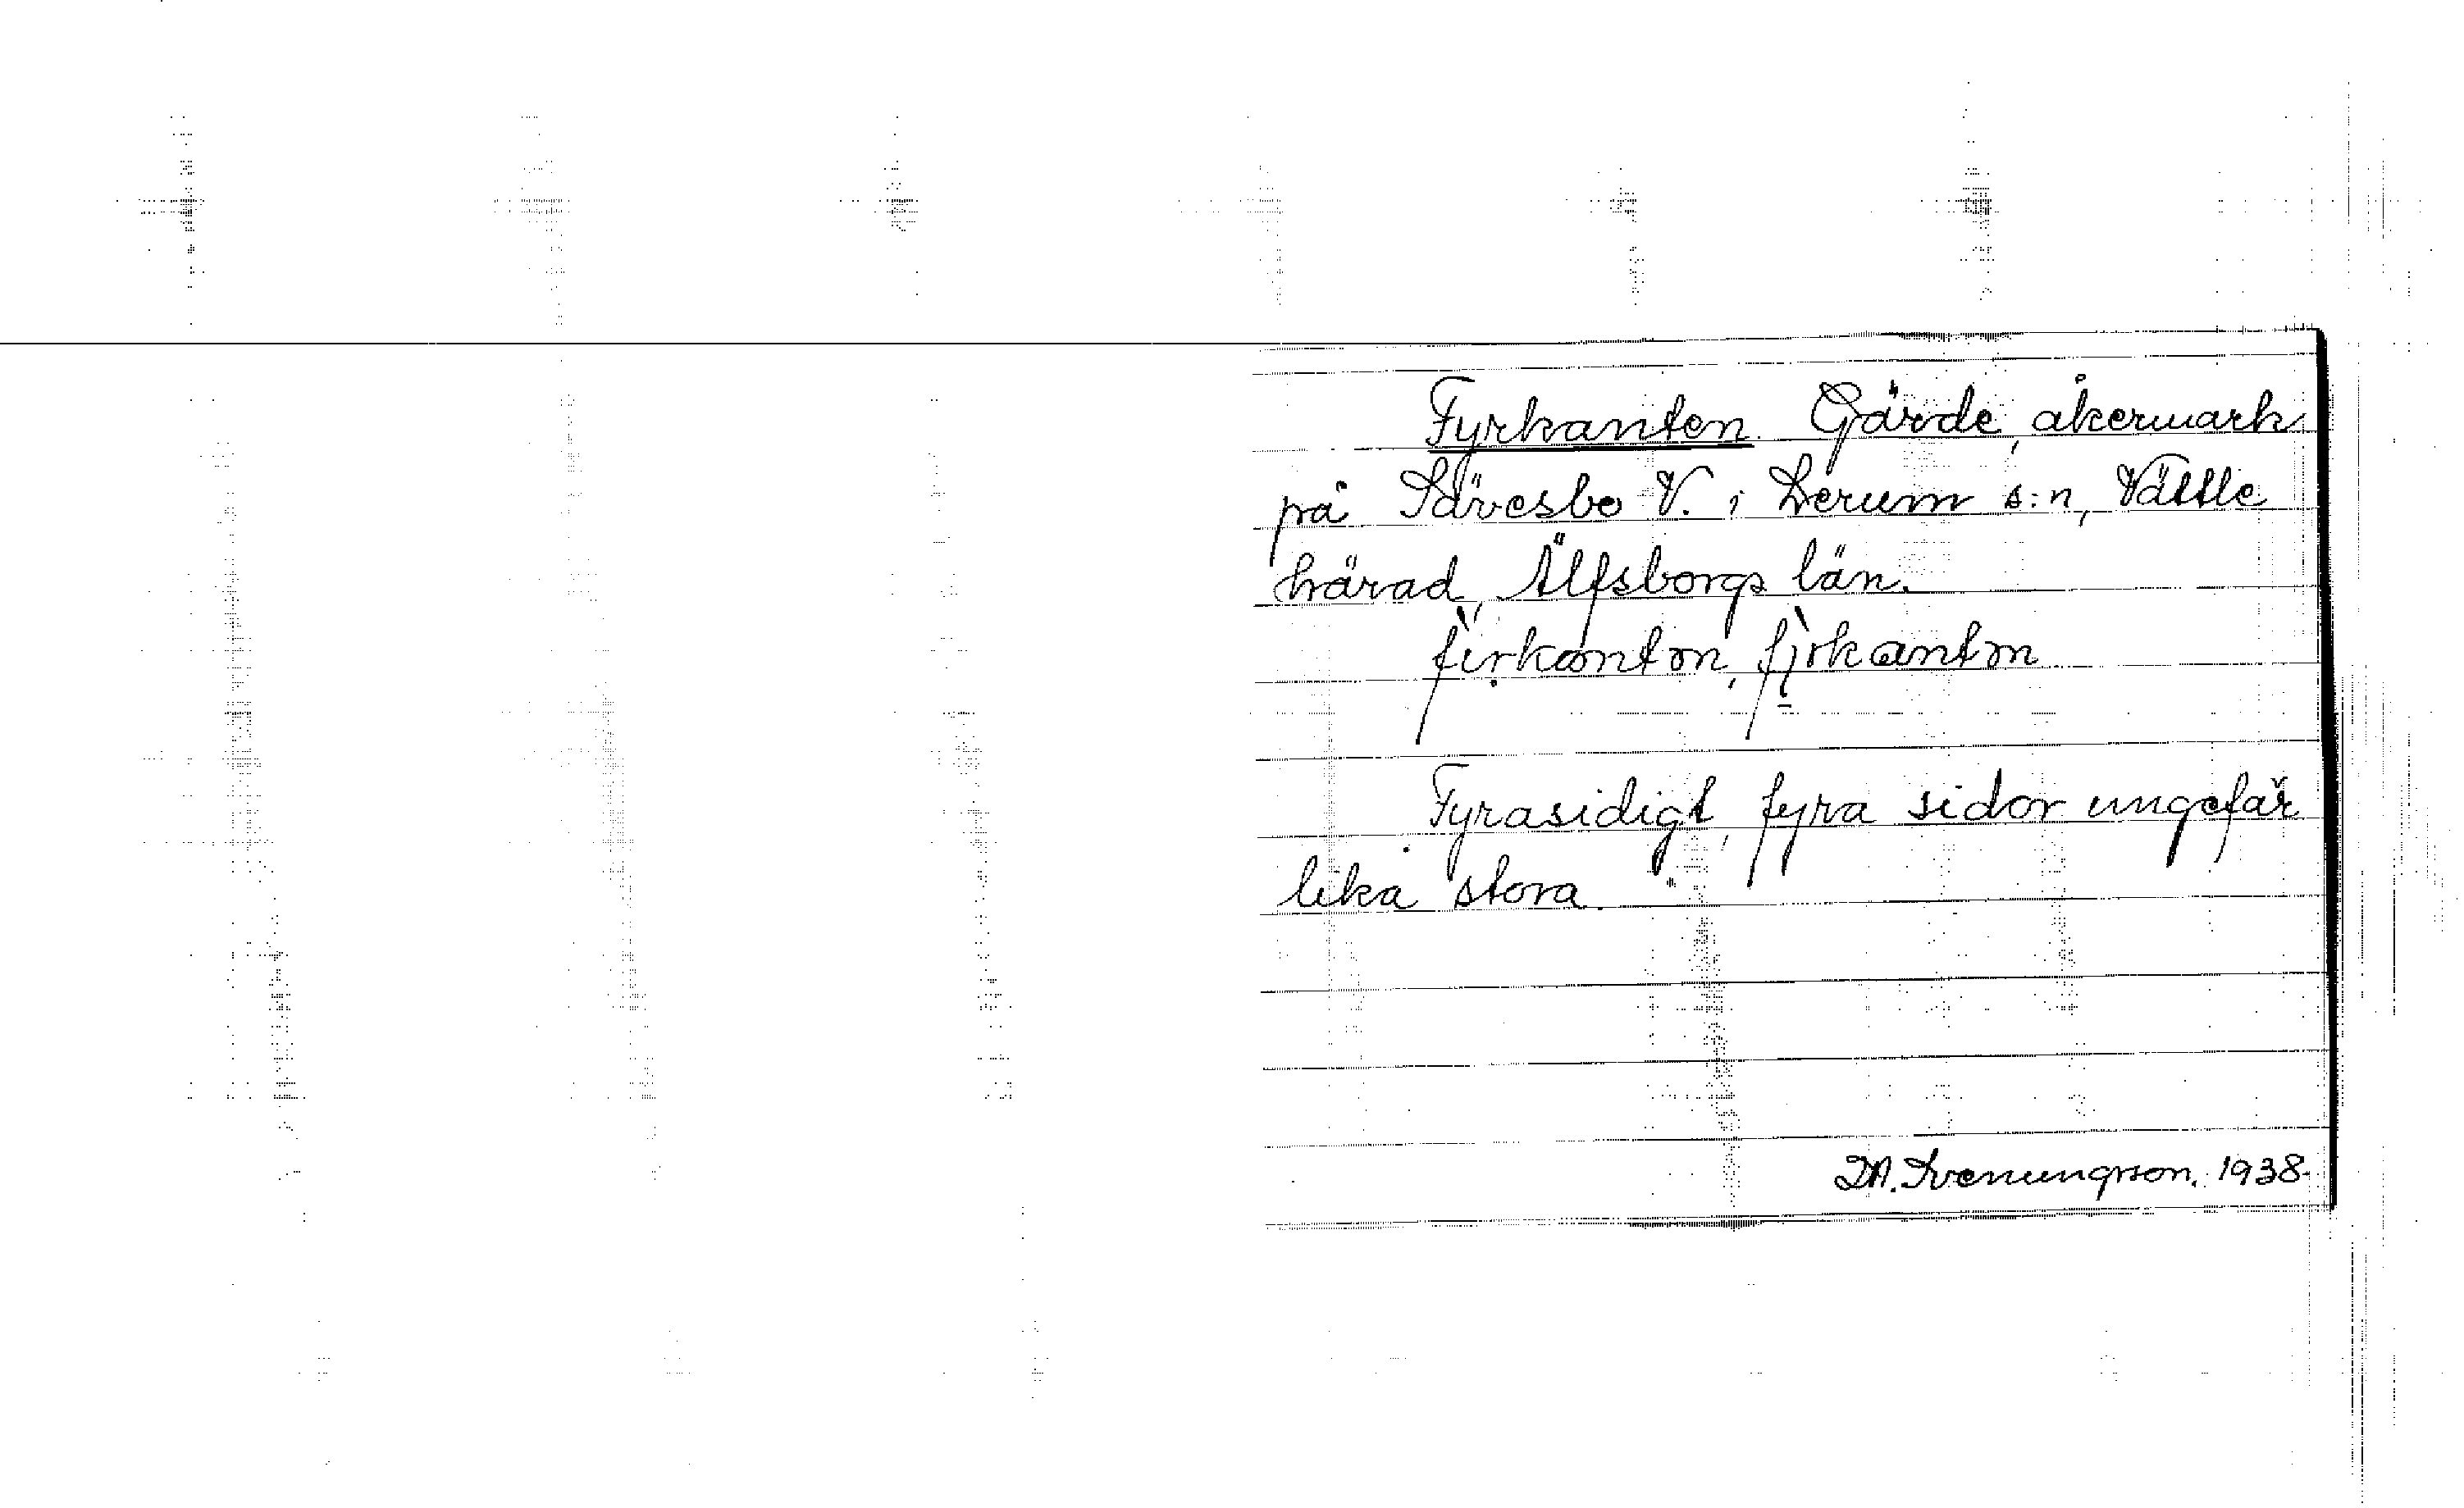 Fyrkanten. Gärde, åkermark
på Sävesbo V. i Lerum s:n, Vättle
härad, Älfsborgs län.
Fyrasidigt, fyra sidor ungefär
lika stora.
M. Svenungsson. 1938.